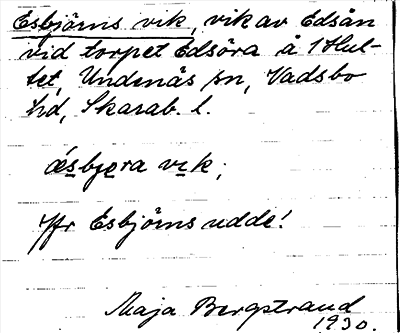 Esbjörns vik, vik av Edsån
vid torpet Edsöra å 1 Hul-
tet, Undenäs sn, Vadsbo
hd, Skarab. l.
æsbjora vik;
Jfr Esbjörns udde!
Maja Bergstrand
1930.